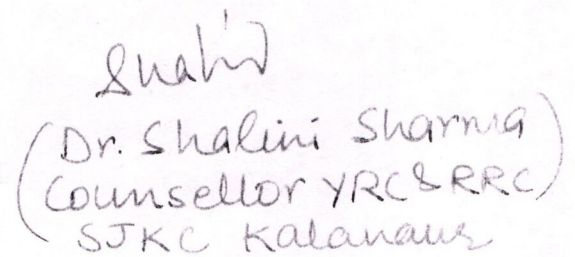 (Dr. Shalini Sharma
Counsellor YRC & RRC)
SJKC Kalanaur